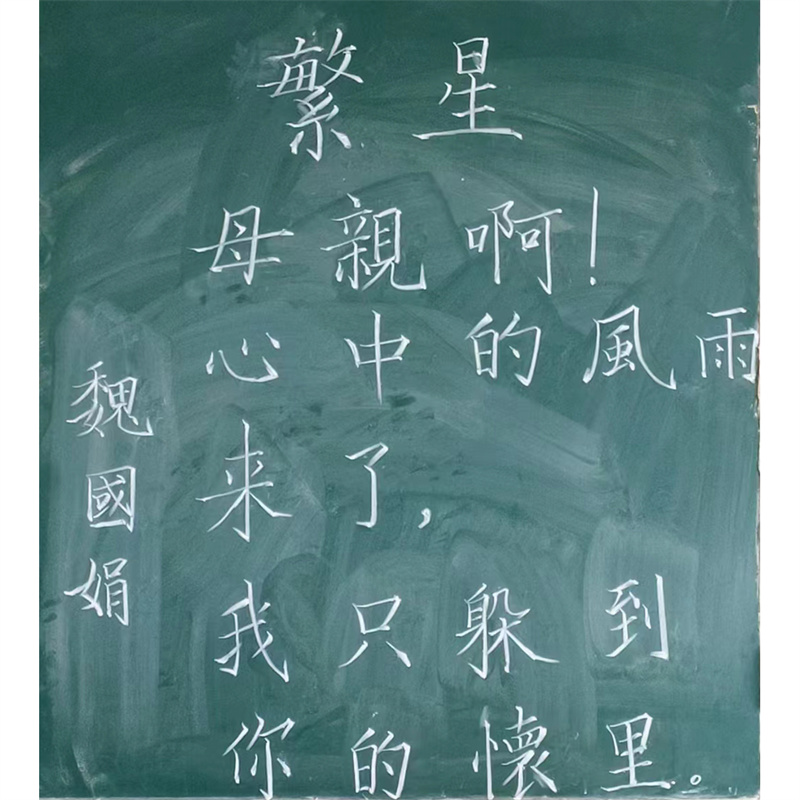 繁星
母親啊!
心中的風雨
来了,
我只躲到
你的懷里。
魏國娟